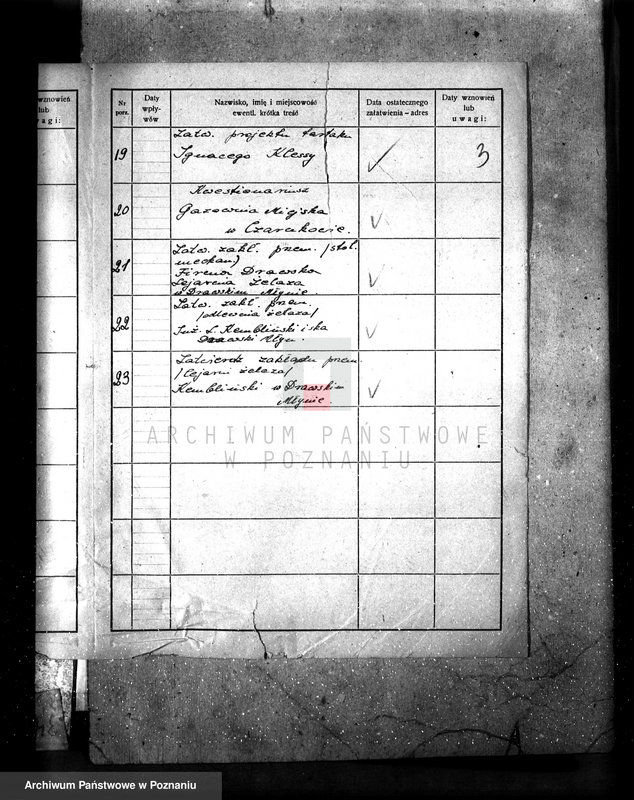 wznowień
lub
wagi:
Nr porz.
Daty wpły-wów
Nazwisko, imię i miejscowość ewentl. krótka treść
Data ostatecznego załatwienia – adres
Daty wznowień lub uwagi:
19
Zatw. projektu tartaku
Ignacego Klessy
3
20
Kwestionariusz
Gazownia Miejska
w Czarnkowie.
21
Zatw. zakł. przem. /stol.
mechan./
Firma Drawsko
Lejarnia Żelaza
w Drawskim Młynie.
22
Zatw. zakł. przem.
/odlewnia żelaza/
Inż. L. Kembliński i ska
Drawski Młyn.
23
Zatwierdz. zakładu przem.
/lejarni żelaza/
Kembliński w Drawskim
Młynie.
ARCHIWUM PAŃSTWOWE
W POZNANIU
Archiwum Państwowe w Poznaniu